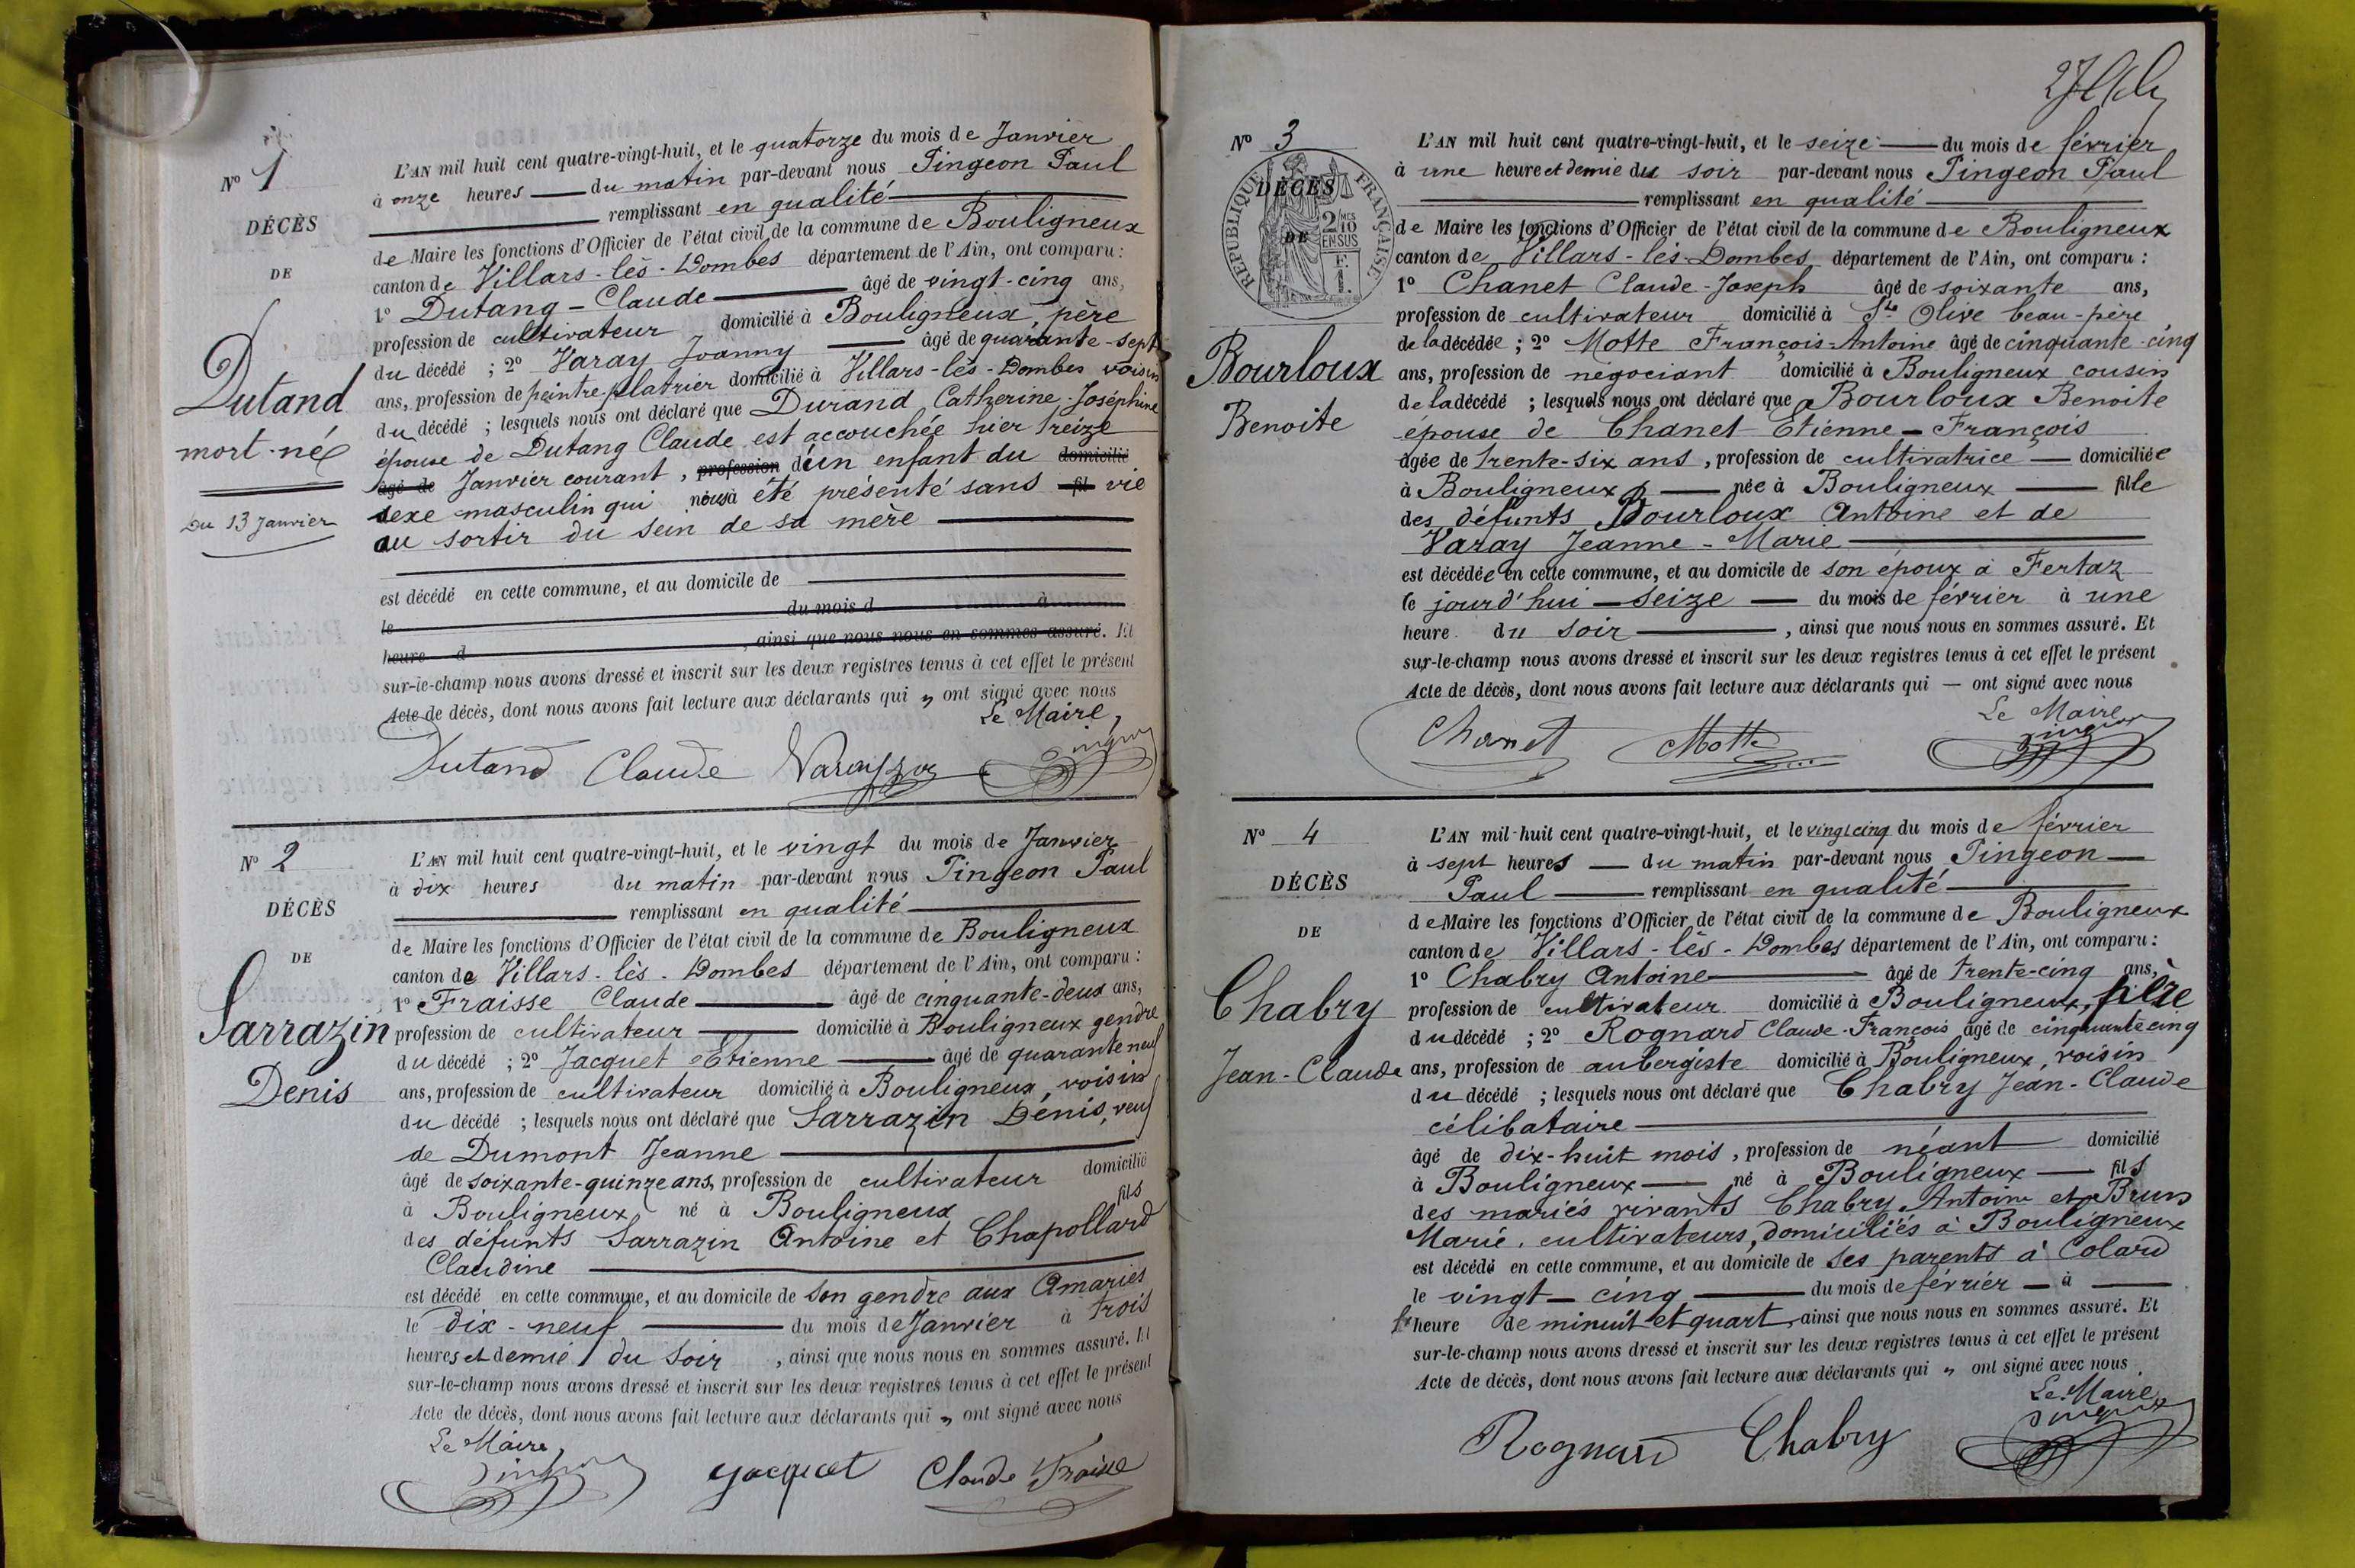 Nº 1
DÉCÈS
DE
Dutand
mort-né
Du 13 Janvier
L'AN mil huit cent quatre-vingt-huit, et le quatorze du mois de Janvier
à onze heures du matin par-devant nous Pingeon Paul
remplissant en qualité
de Maire les fonctions d'Officier de l'état civil de la commune de Bouligneux
canton de Villars-lès-Dombes département de l'Ain, ont comparu :
1º Dutang-Claude âgé de vingt-cinq ans,
profession de cultivateur domicilié à Bouligneux, père
du décédé ; 2º Varay Joanny âgé de quarante-sept
ans, profession de peintre platrier domicilié à Villars-lès-Dombes voisin
du décédé ; lesquels nous ont déclaré que Durand Catherine-Joséphine
épouse de Dutang Claude est accouchée hier treize
âgé de Janvier courant, profession d'un enfant du domicilié
sexe masculin qui nous a été présenté sans fil vie
au sortir du sein de sa mère
est décédé en cette commune, et au domicile de
le du mois d à
heure d , ainsi que nous nous en sommes assuré. Et
sur-le-champ nous avons dressé et inscrit sur les deux registres tenus à cet effet le présent
Acte de décès, dont nous avons fait lecture aux déclarants qui " ont signé avec nous
Le Maire,
Dutand Claude Varay Pingeon
Nº 2
DÉCÈS
DE
Sarrazin
Denis
L'AN mil huit cent quatre-vingt-huit, et le vingt du mois de Janvier
à dix heures du matin par-devant nous Pingeon Paul
remplissant en qualité
de Maire les fonctions d'Officier de l'état civil de la commune de Bouligneux
canton de Villars-lès-Dombes département de l'Ain, ont comparu :
1º Fraisse Claude âgé de cinquante-deux ans,
profession de cultivateur domicilié à Bouligneux gendre
du décédé ; 2º Jacquet Etienne âgé de quarante neuf
ans, profession de cultivateur domicilié à Bouligneux, voisin
du décédé ; lesquels nous ont déclaré que Sarrazin Dénis, veuf
de Dumont Jeanne
âgé de soixante-quinze ans, profession de cultivateur domicilié
à Bouligneux né à Bouligneux fils
des défunts Sarrazin Antoine et Chapollard
Claudine
est décédé en cette commune, et au domicile de son gendre aux Amariés
le dix-neuf du mois de Janvier à trois
heures et demie du soir , ainsi que nous nous en sommes assuré. Et
sur-le-champ nous avons dressé et inscrit sur les deux registres tenus à cet effet le présent
Acte de décès, dont nous avons fait lecture aux déclarants qui " ont signé avec nous
Le Maire,
Pingeon Jacquet Claude Fraisse
Nº 3
RÉPUBLIQUE FRANÇAISE
DÉCÈS
DE
2/10 MES
EN SUS
F.
1.
Bourloux
Benoite
L'AN mil huit cent quatre-vingt-huit, et le seize du mois de février
à une heure et demie du soir par-devant nous Pingeon Paul
remplissant en qualité
de Maire les fonctions d'Officier de l'état civil de la commune de Bouligneux
canton de Villars-lès-Dombes département de l'Ain, ont comparu :
1º Chanet Claude-Joseph âgé de soixante ans,
profession de cultivateur domicilié à Ste Olive beau-père
de la décédée ; 2º Motte François-Antoine âgé de cinquante-cinq
ans, profession de négociant domicilié à Bouligneux cousin
de la décédé ; lesquels nous ont déclaré que Bourloux Benoite
epouse de Chanet Etienne-François
âgée de trente-six ans, profession de cultivatrice domiciliée
à Bouligneux née à Bouligneux fille
des défunts Bourloux Antoine et de
Varay Jeanne-Marie
est décédée en cette commune, et au domicile de son époux à Fertaz
le jourd'hui seize du mois de février à une
heure du soir , ainsi que nous nous en sommes assuré. Et
sur-le-champ nous avons dressé et inscrit sur les deux registres tenus à cet effet le présent
Acte de décès, dont nous avons fait lecture aux déclarants qui — ont signé avec nous
Le Maire
Chanet Motte Pingeon
Nº 4
DÉCÈS
DE
Chabry
Jean-Claude
L'AN mil huit cent quatre-vingt-huit, et le vingt cinq du mois de février
à sept heures du matin par-devant nous Pingeon
Paul remplissant en qualité
de Maire les fonctions d'Officier de l'état civil de la commune de Bouligneux
canton de Villars-lès-Dombes département de l'Ain, ont comparu :
1º Chabry Antoine âgé de trente-cinq ans,
profession de cultivateur domicilié à Bouligneux, père
du décédé ; 2º Rognard Claude-François âgé de cinquante cinq
ans, profession de aubergiste domicilié à Bouligneux, voisin
du décédé ; lesquels nous ont déclaré que Chabry Jean-Claude
célibataire
âgé de dix-huit mois, profession de néant domicilié
à Bouligneux né à Bouligneux fils
des mariés vivants Chabry Antoine et Brun
Marie, cultivateurs, domiciliés à Bouligneux
est décédé en cette commune, et au domicile de ses parents à Colard
le vingt-cinq du mois de février à
heure de minuit et quart ainsi que nous nous en sommes assuré. Et
sur-le-champ nous avons dressé et inscrit sur les deux registres tenus à cet effet le présent
Acte de décès, dont nous avons fait lecture aux déclarants qui " ont signé avec nous
Le Maire
Rognard Chabry Pingeon